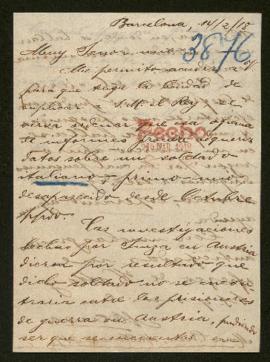 Barcelona, 14/2/18
3876
Muy Señor mío:
Me permito acudir a
para que tenga la bondad de
suplicar a S. M. el Rey se
sirva ordenar que esa oficina
de informes
datos sobre un soldado
italiano – primo mío
desaparecido desde Octubre
ppdo.
Las investigaciones
hechas por Suiza en Austria
dieron por resultado que
dicho soldado no se encon
traria entre los prisioneros
de guerra en Austria, pudiendo
ser que se encuentre en